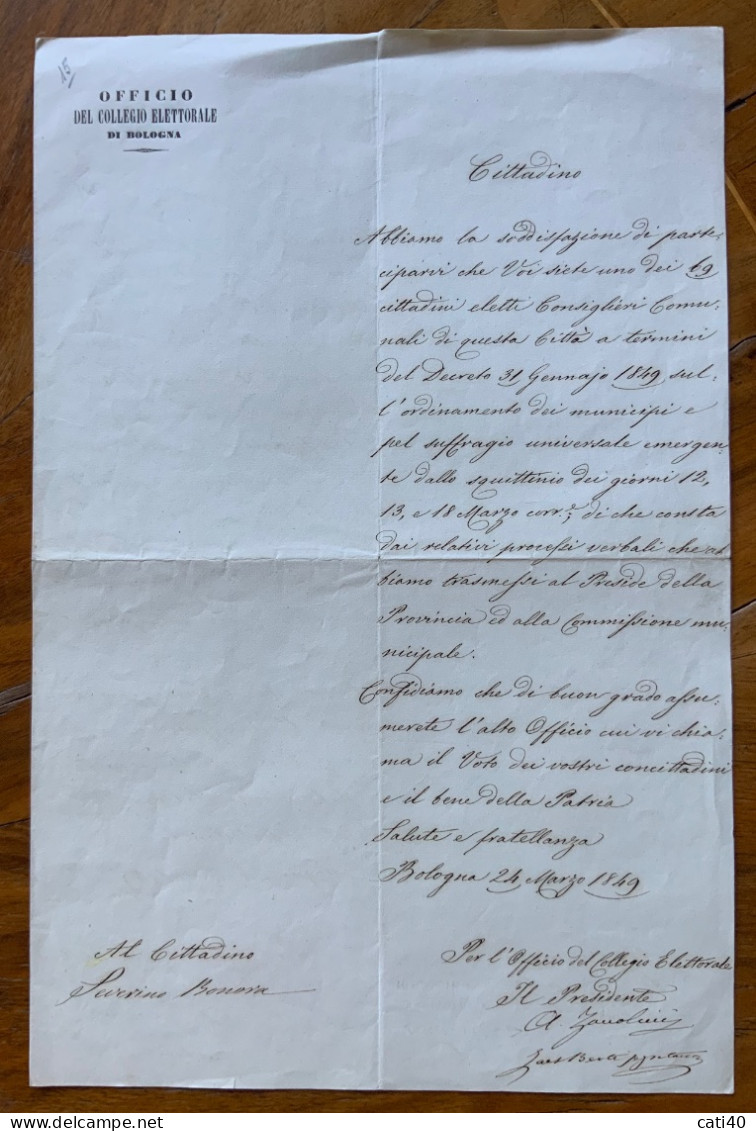 15
OFFICIO
DEL COLLEGIO ELETTORALE
DI BOLOGNA
Cittadino
Abbiamo la soddisfazione di parte-
ciparvi che Voi siete uno dei 69
cittadini eletti Consiglieri Comu-
nali di questa Città a termini
del Decreto 31 Gennajo 1849 sul-
l'ordinamento dei municipi e
pel suffragio universale emergen-
te dallo squittinio dei giorni 12,
13, e 18 Marzo corr.e; di che consta
dai relativi processi verbali che ab
biamo trasmessi al Preside della
Provincia ed alla Commissione mu-
nicipale.
Confidiamo che di buon grado assu-
merete l'alto Officio cui vi chia-
ma il Voto dei vostri concittadini
e il bene della Patria
Salute e fratellanza
Bologna 24 Marzo 1849
Al Cittadino
Severino Bonora
Per l'Officio del Collegio Elettorale
Il Presidente
A. Zanolini
cati40